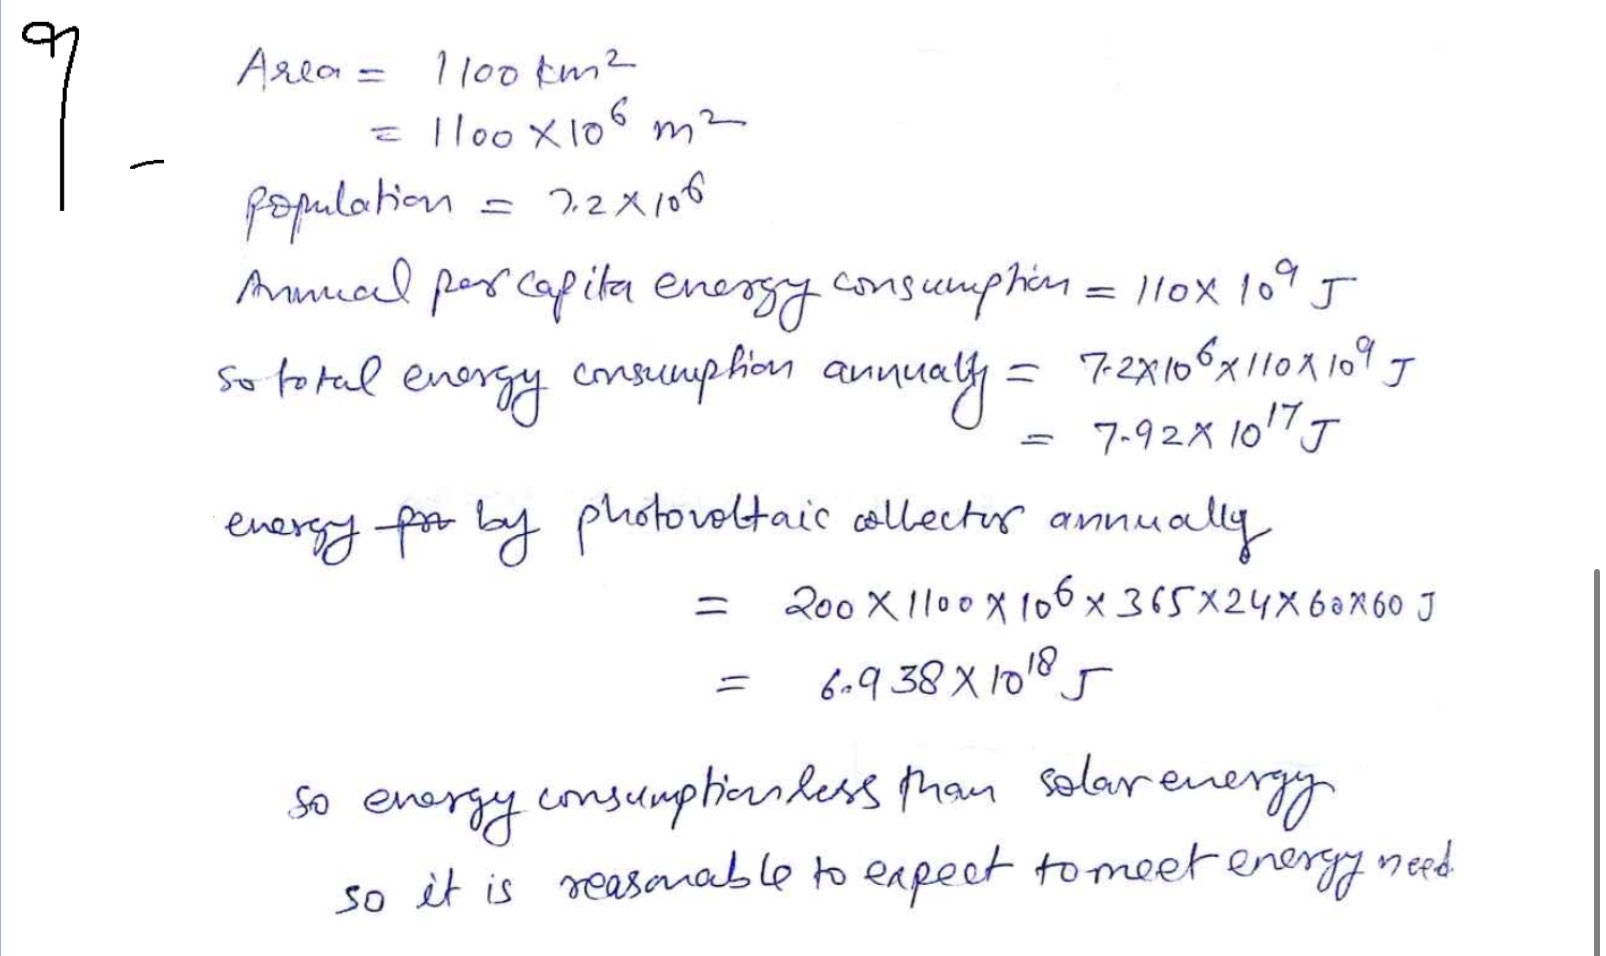 9
Area = 1100 km²
= 1100 × 10⁶ m²
-
population = 7.2 × 10⁶
Annual per capita energy consumption = 110 × 10⁹ J
so total energy consumption annually = 7.2×10⁶×110×10⁹ J
= 7.92 × 10¹⁷ J
energy by photovoltaic collector annually
= 200 × 1100 × 10⁶ × 365 × 24 × 60 × 60 J
= 6.938 × 10¹⁸ J
so energy consumption less than solar energy
so it is reasonable to expect to meet energy need.